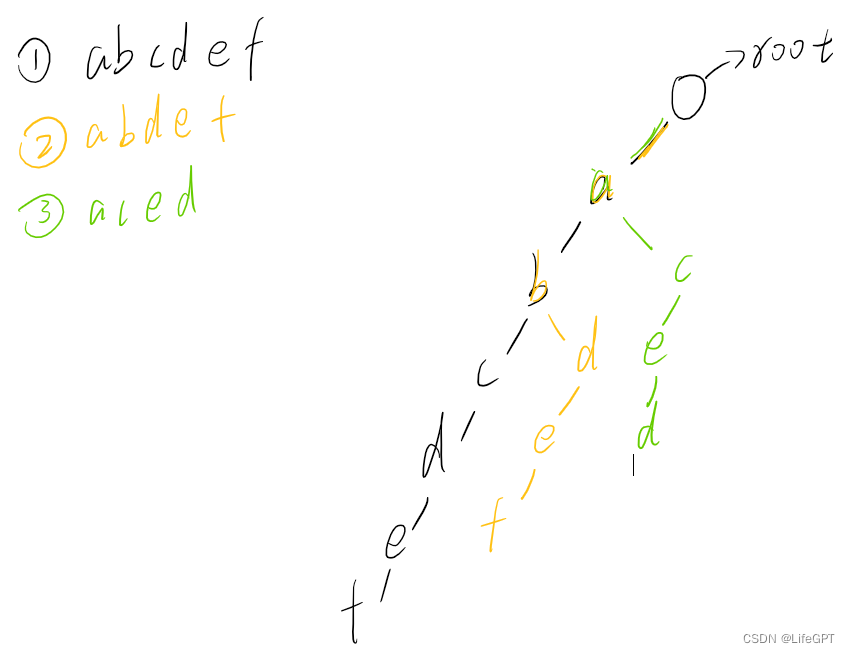 ① abcdef
② abdef
③ aced
root
a
b
c
c
d
e
d
e
d
e
f
f
CSDN @LifeGPT